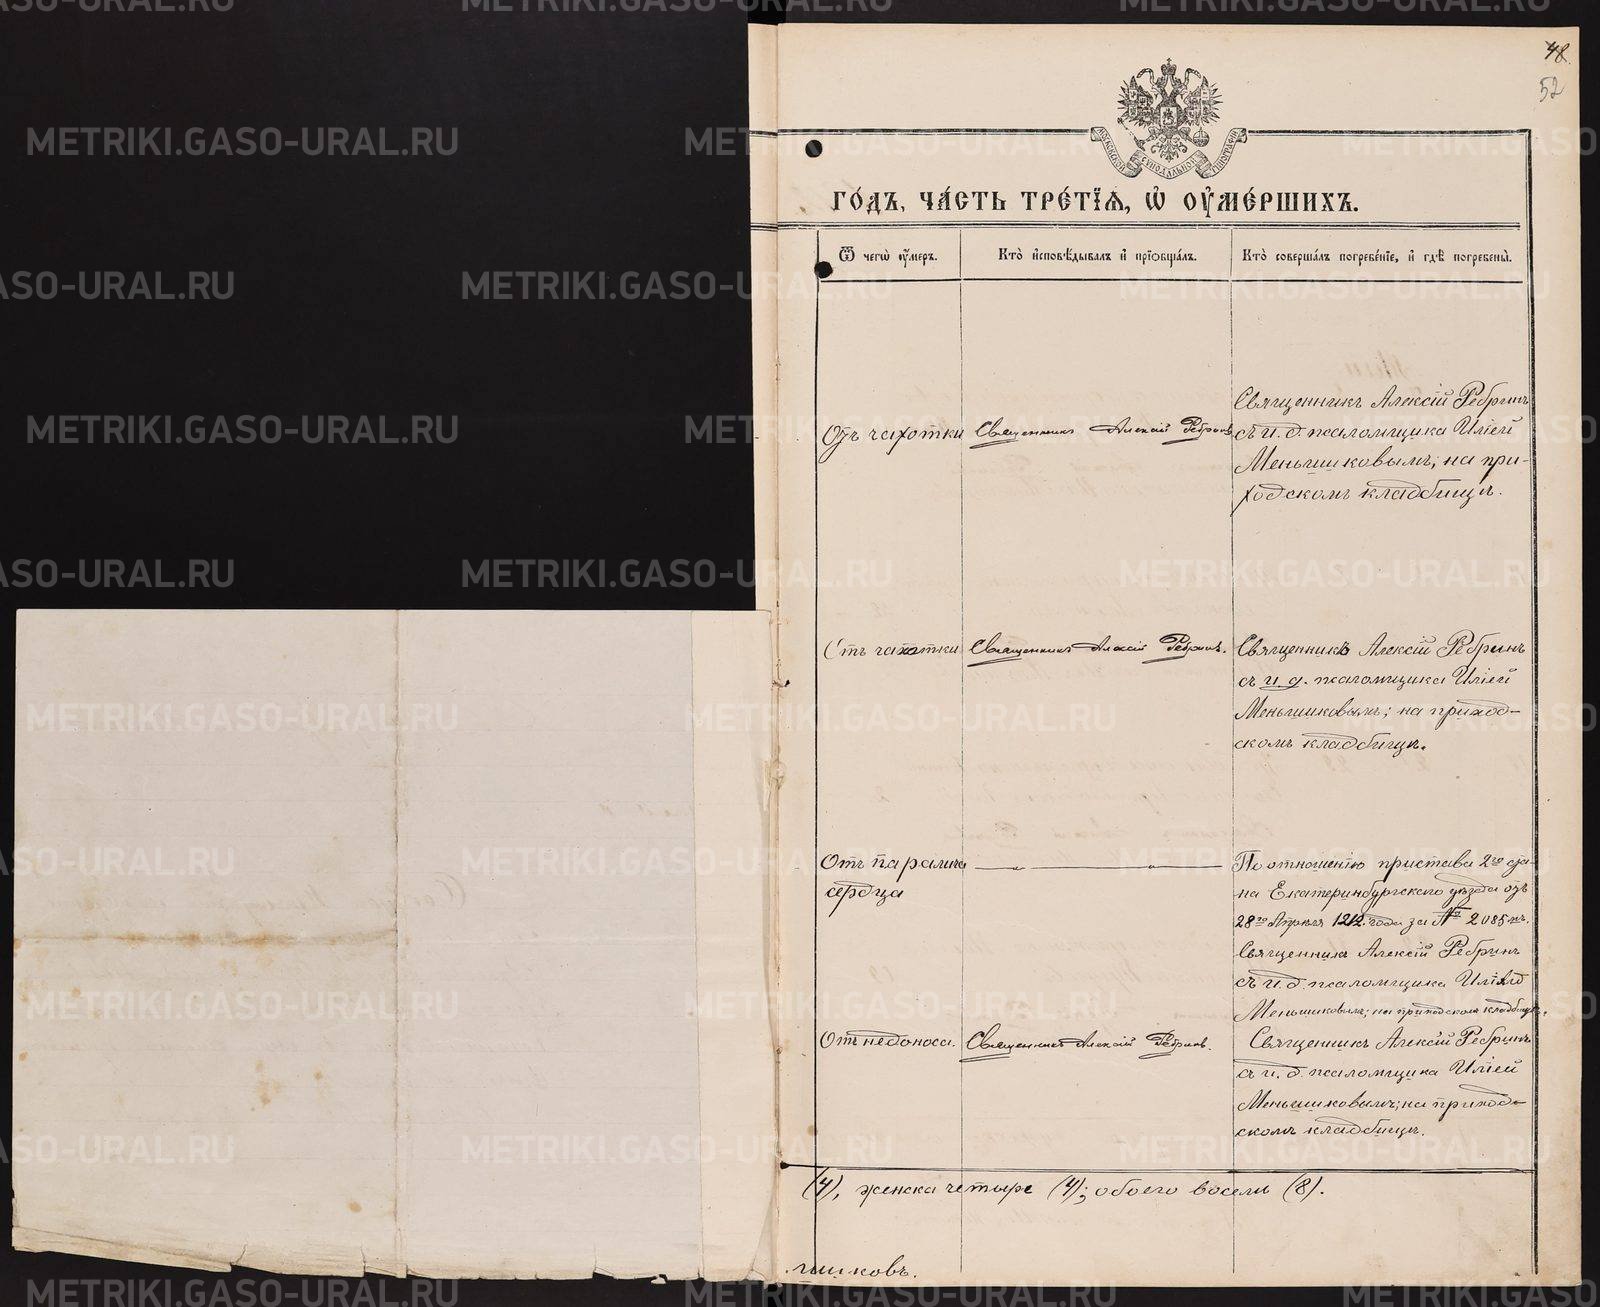 48.
52
МОСКОВСКОЙ СѴНОДАЛЬНОЙ ТИПОГРАФІИ
ГОДЪ, ЧАСТЬ ТРЕТІѦ, Ѡ ОУМЕРШИХЪ.
Ѿ чегѡ оумеръ.
Кто исповѣдывалъ и пріобщалъ.
Кто совершалъ погребеніе, и гдѣ погребены.
Отъ чахотки
Священникъ Алексій Ребринъ
Священникъ Алексій Ребринъ
съ и. д. псаломщика Иліей
Меньшиковымъ; на при-
ходскомъ кладбищѣ.
Отъ чахотки
Священникъ Алексій Ребринъ.
Священникъ Алексій Ребринъ
съ и. д. псаломщика Иліей
Меньшиковымъ; на приход-
скомъ кладбищѣ.
Отъ паралича
сердца
По отношенію пристава 2го ста-
на Екатеринбургскаго уѣзда отъ
28го Апрѣля 1912 года за № 2085
Священникъ Алексій Ребринъ
съ и. д. псаломщика Иліей
Меньшиковымъ; на приходскомъ кладбищѣ.
Отъ недоноса.
Священникъ Алексій Ребринъ.
Священникъ Алексій Ребринъ
съ и. д. псаломщика Иліей
Меньшиковымъ; на приход-
скомъ кладбищѣ.
(4), женска четыре (4); обоего восемь (8).
ншиковъ.
METRIKI.GASO-URAL.RU